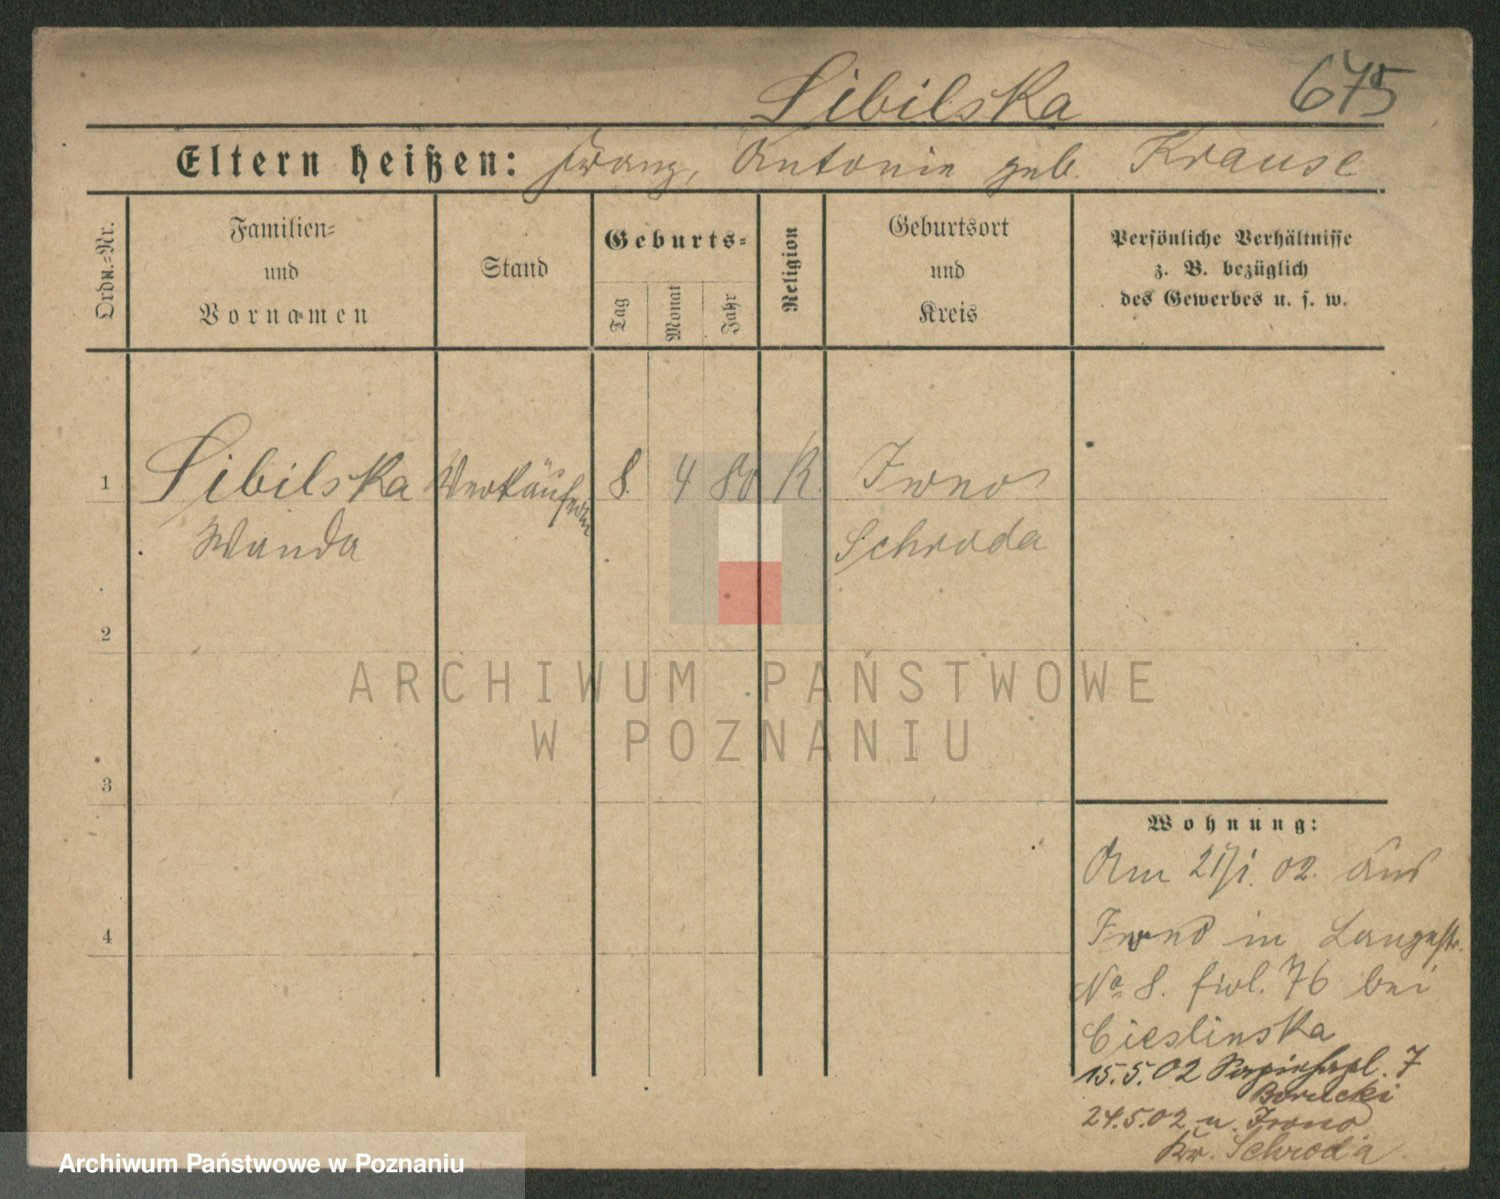 Sibilska 675
Eltern heißen: Franz, Antonie geb. Krause
Ordn.-Nr.
Familien-
und
Vornamen
Stand
Geburts-
Tag
Monat
Jahr
Religion
Geburtsort
und
Kreis
Persönliche Verhältnisse
z. B. bezüglich
des Gewerbes u. s. w.
1 Sibilska Verkäuferin 8. 4 80 K.
Wanda Schroda
2
ARCHIWUM PAŃSTWOWE
W POZNANIU
3
Wohnung:
Am 21/1. 02. aus
in Langestr.
No 8. 76 bei
4
Cieslinska
15.5.02 7
Borucki
24.5.02 n.
Kr. Schroda
Archiwum Państwowe w Poznaniu